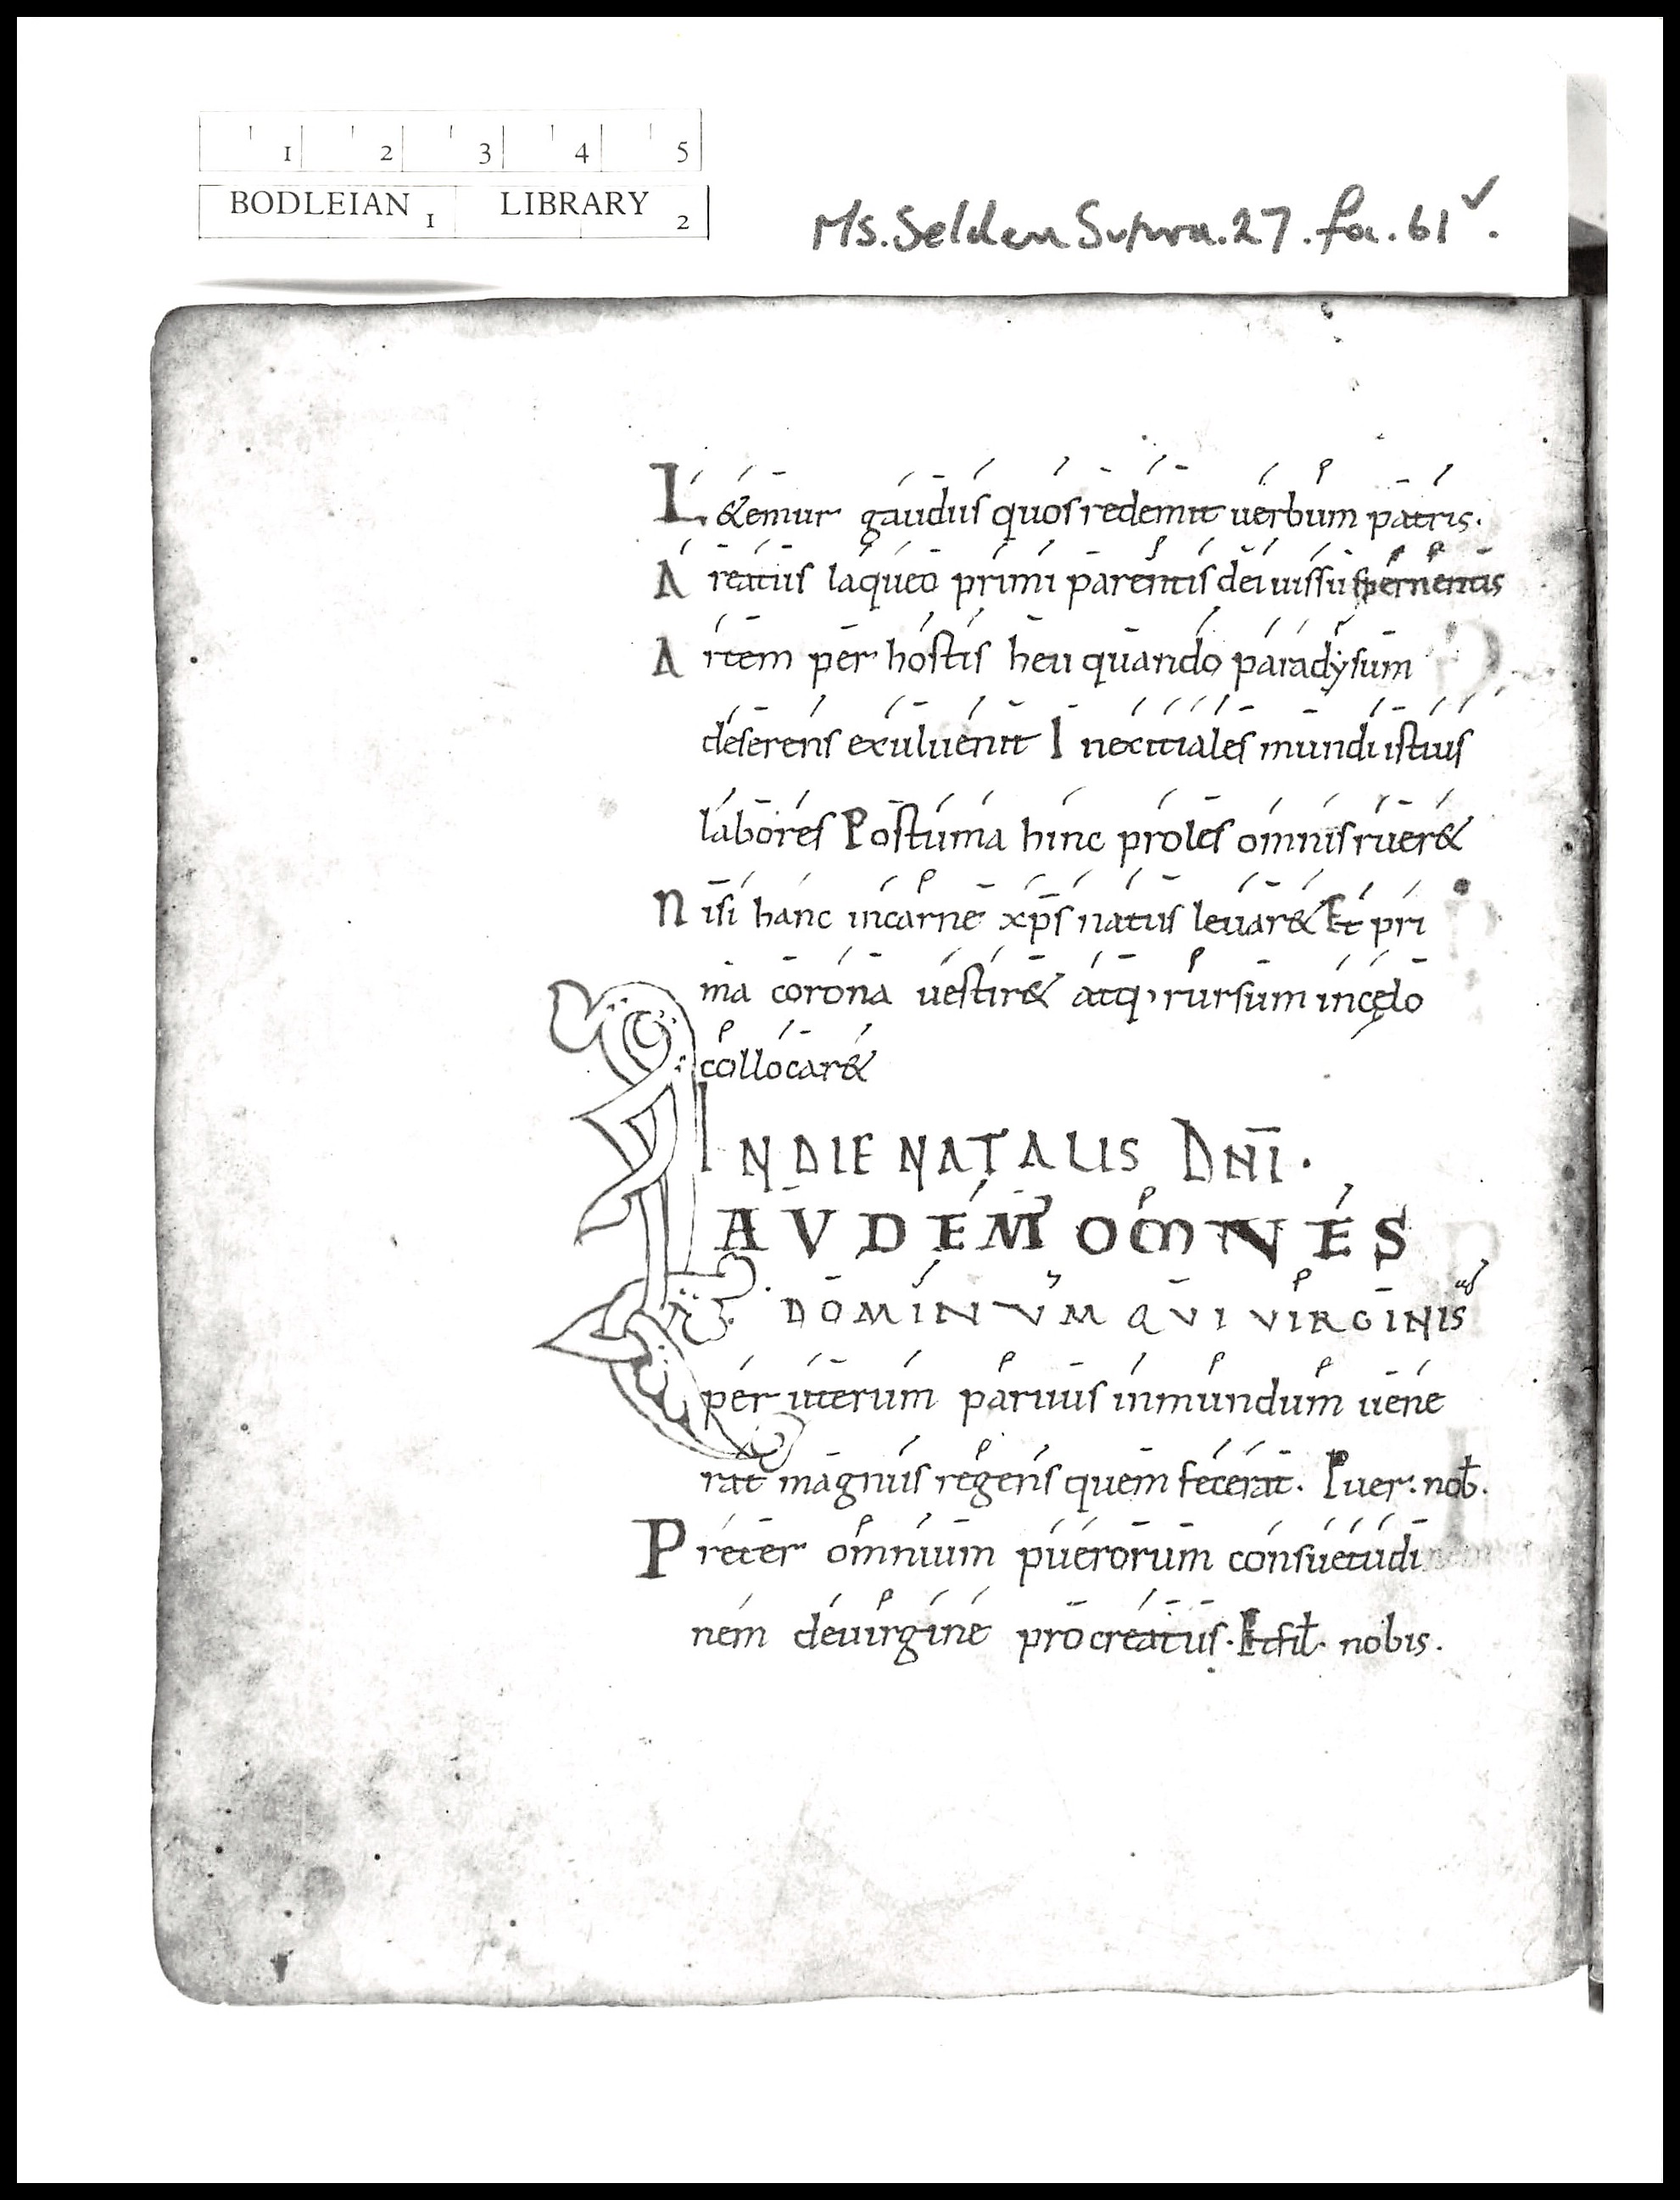 1 2 3 4 5
BODLEIAN LIBRARY
1 2
Ms. Selden Supra. 27. fo. 61v.
L&emur gaudiis quos redemit uerbum patris.
Areatus laqueo primi parentis dei iussu spernentis
Artem per hostis heu quando paradysum
deserens exul uenit In exitiales mundi istius
labores Postuma hinc proles omnis ruer&
Nisi hanc incarne xp̄s natus leuar& Et pri
ma corona uestir& atq; rursum incęlo
collocar&
IN DIE NATALIS DNĪ.
LAUDEM OMNES
DOMINUM QUI VIRGINIS
per uterum paruus inmundum uene
rat magnus regens quem fecerat. Puer: nob̄.
Preter omnium puerorum consuetudi
nem deuirgine procreatus. Et fił. nobis.